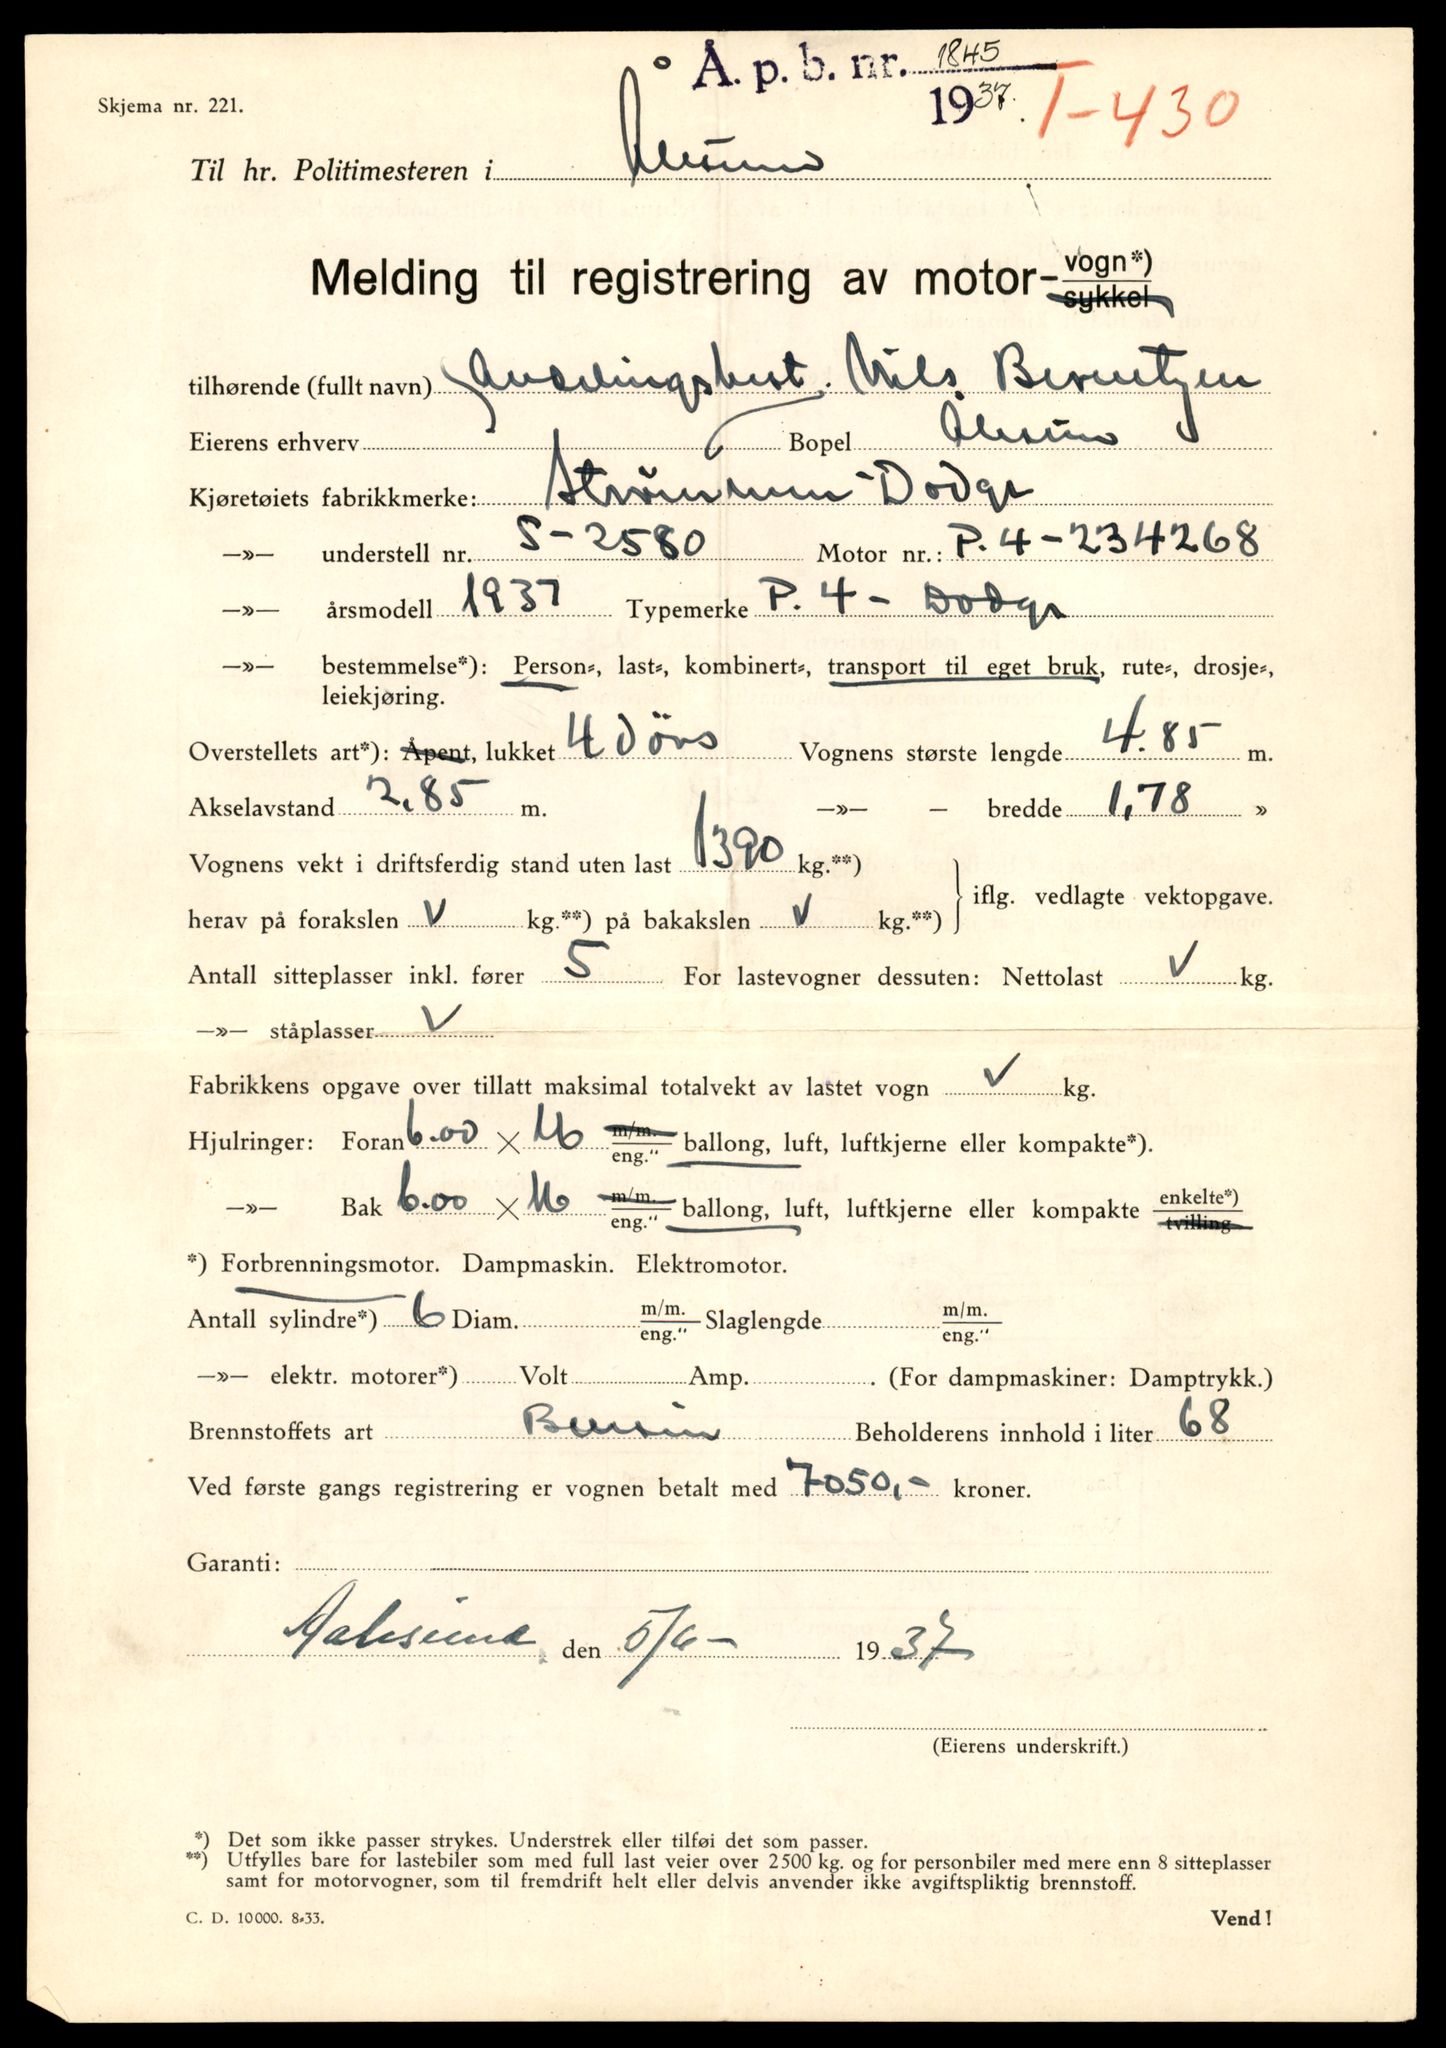 Å. p. b. nr. 1845
1937.
T-430
Skjema nr. 221.
Til hr. Politimesteren i Ålesund
Melding til registrering av motor- vogn*)
sykkel
tilhørende (fullt navn) Avdelingsbest. Nils Berentzen
Eierens erhverv Bopel Ålesund
Kjøretøiets fabrikkmerke: Strømmen-Dodge
—»— understell nr. S-2580 Motor nr.: P.4-234268
—»— årsmodell 1937 Typemerke P.4- Dodge
—»— bestemmelse*): Person-, last-, kombinert-, transport til eget bruk, rute-, drosje-,
leiekjøring.
Overstellets art*): Åpent, lukket 4 dörs Vognens største lengde 4.85 m.
Akselavstand 2,85 m. —»— — bredde 1,78 »
Vognens vekt i driftsferdig stand uten last 1390 kg.**)
herav på forakslen V kg.**) på bakakslen V kg.**) iflg. vedlagte vektopgave.
Antall sitteplasser inkl. fører 5 For lastevogner dessuten: Nettolast V kg.
—»— ståplasser V
Fabrikkens opgave over tillatt maksimal totalvekt av lastet vogn V kg.
Hjulringer: Foran 6.00 × 16 m/m. eng." ballong, luft, luftkjerne eller kompakte*).
—»— Bak 6.00 × 16 m/m. eng." ballong, luft, luftkjerne eller kompakte enkelte*) tvilling
*) Forbrenningsmotor. Dampmaskin. Elektromotor.
Antall sylindre*) 6 Diam. m/m. eng." Slaglengde m/m. eng."
—»— elektr. motorer*) Volt Amp. . (For dampmaskiner: Damptrykk.)
Brennstoffets art Bensin Beholderens innhold i liter 68
Ved første gangs registrering er vognen betalt med 7050,- kroner.
Garanti:
Aalesund den 5/6- 1937
(Eierens underskrift.)
*) Det som ikke passer strykes. Understrek eller tilføi det som passer.
**) Utfylles bare for lastebiler som med full last veier over 2500 kg. og for personbiler med mere enn 8 sitteplasser
samt for motorvogner, som til fremdrift helt eller delvis anvender ikke avgiftspliktig brennstoff.
C. D. 10000. 8-33.
Vend!